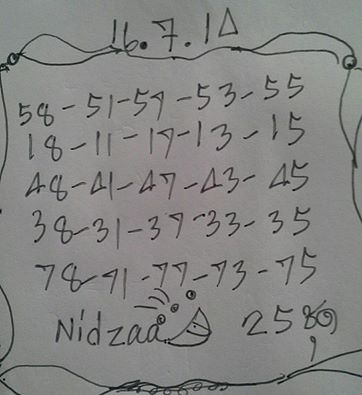 16.7.14
58-51-57-53-55
18-11-17-13-15
48-41-47-43-45
38-31-37-33-35
78-71-77-73-75
Nidzaa 2580